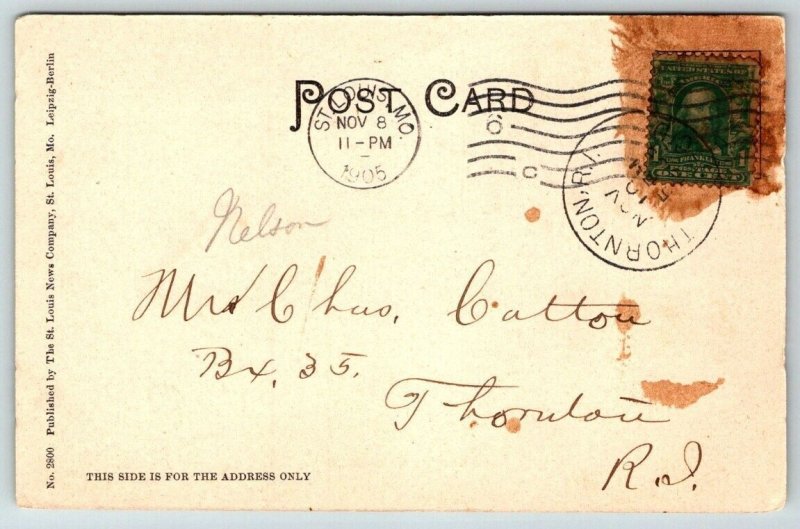 POST CARD
ST. LOUIS, MO.
NOV 8
11-PM
1905
UNITED STATES OF
FRANKLIN
POSTAGE
THORNTON, R.I.
NOV
10
Nelson
Mrs Chas. Catton
Bx, 35.
Thornton
R.I.
THIS SIDE IS FOR THE ADDRESS ONLY
No. 2800 Published by The St. Louis News Company, St. Louis, Mo. Leipzig-Berlin